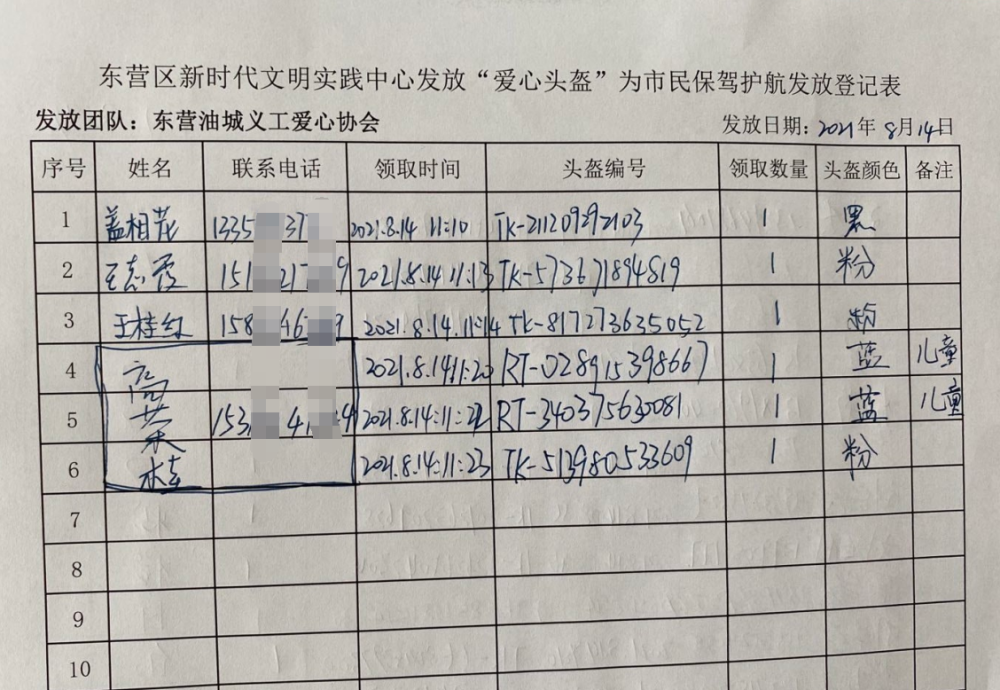 东营区新时代文明实践中心发放“爱心头盔”为市民保驾护航发放登记表
发放团队：东营油城义工爱心协会 发放日期：2021年 8月14日
序号 姓名 联系电话 领取时间 头盔编号 领取数量 头盔颜色 备注
1 盖相茂 1335 37 2021.8.14 11:10 TK-21120992103 1 黑
2 王志霞 151 217 9 2021.8.14.11:13 TK-573671894819 1 粉
3 王桂红 158 46 9 2021.8.14.11:14 TK-817273635052 1 粉
4 高 2021.8.14 11:20 RT-028915398667 1 蓝 儿童
5 荣 153 41 9 2021.8.14:11:22 RT-340375630081 1 蓝 儿童
6 桂 2021.8.14:11:23 TK-513980533609 1 粉
7
8
9
10